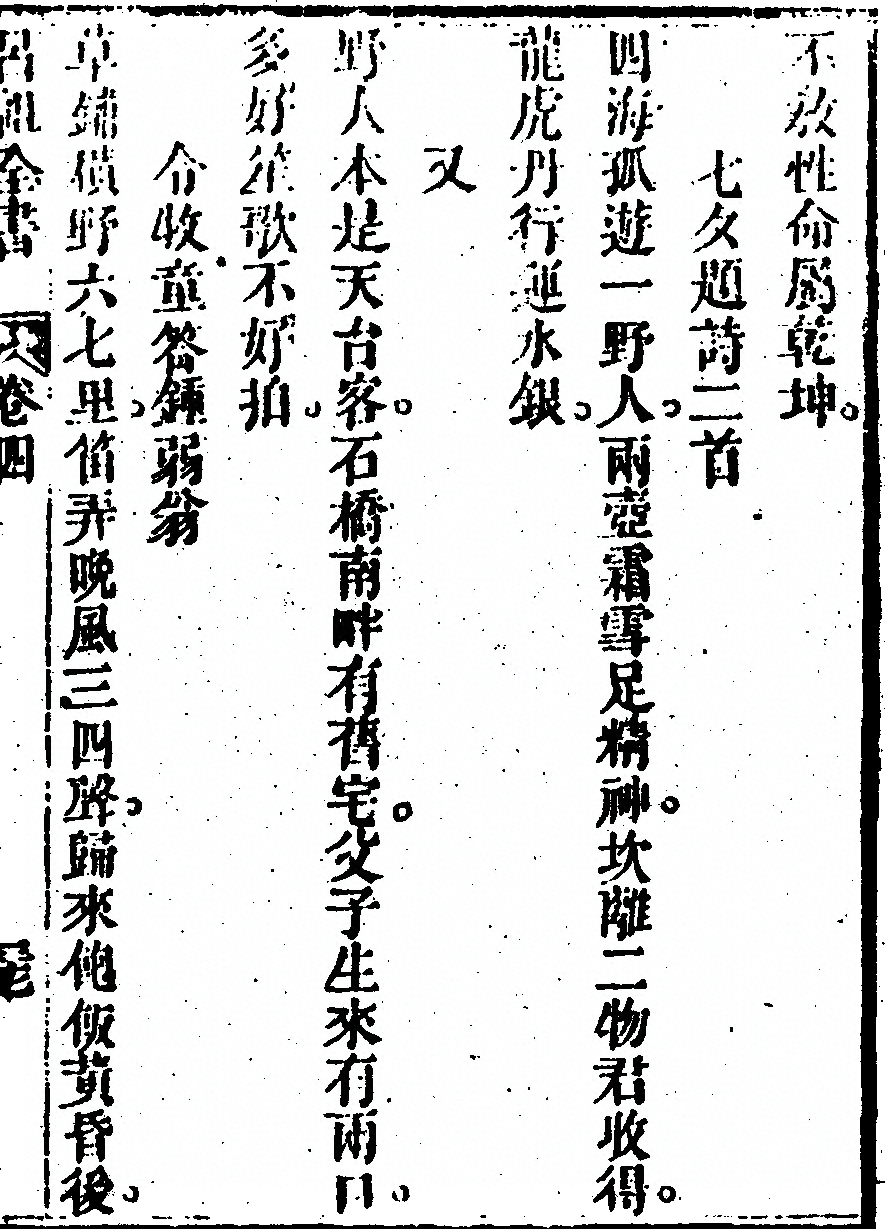 不教性命屬乾坤。
七夕題詩二首
四海孤遊一野人。兩壺霜雪足精神。坎離二物君收得。
龍虎丹行運水銀。
又
野人本是天台客。石橋南畔有舊宅。父子生來有兩口。
多好笙歌不好拍。
令牧童答鍾弱翁
草鋪橫野六七里。笛弄晚風三四聲。歸來飽飯黃昏後。
呂祖全書 卷四